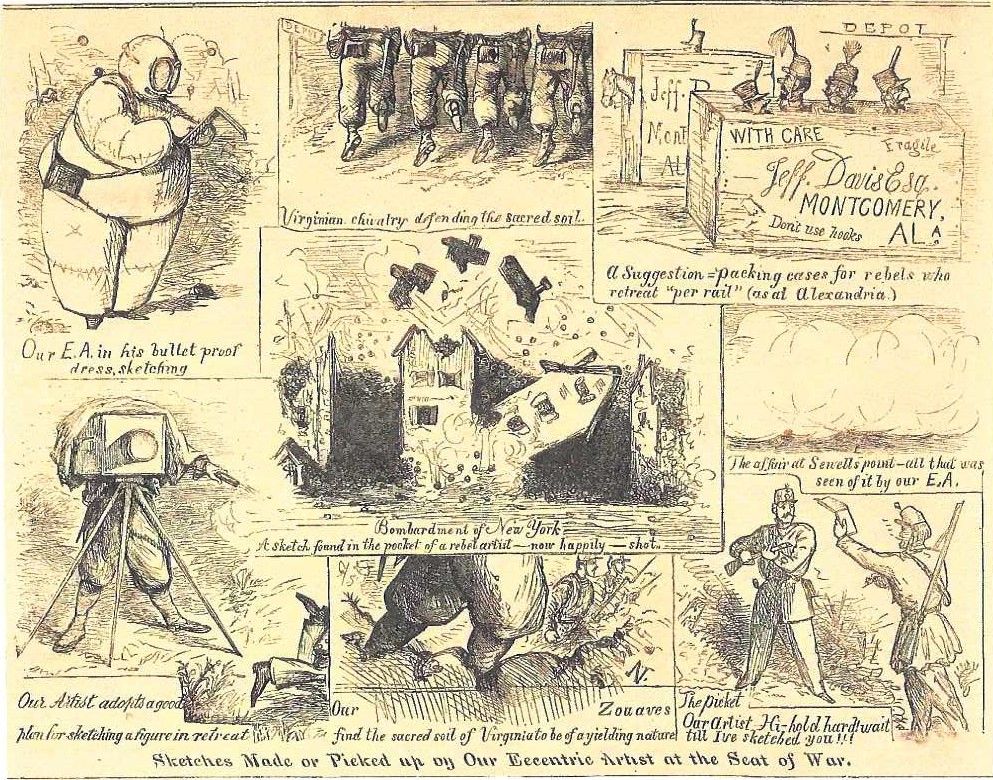 DEPOT
Virginian chivalry defending the sacred soil.
DEPOT
Jeff. D
Mont
AL
WITH CARE
Fragile
Jeff. Davis Esq.
MONTGOMERY,
Don't use hooks
ALA
A Suggestion = packing cases for rebels who
retreat "per rail" (as at Alexandria.)
Our E.A. in his bullet proof
dress, sketching
The affair at Sewells point—all that was
seen of it by our E.A.
Bombardment of New York=
A sketch found in the pocket of a rebel artist—now happily—shot.
Our Artist adopts a good
plan for sketching a figure in retreat
N.
Our Zouaves
find the sacred soil of Virginia to be of a yielding nature
The picket
Our Artist Hi-hold hard! wait
till I've sketched you!!!
Sketches Made or Picked up by Our Eccentric Artist at the Seat of War.